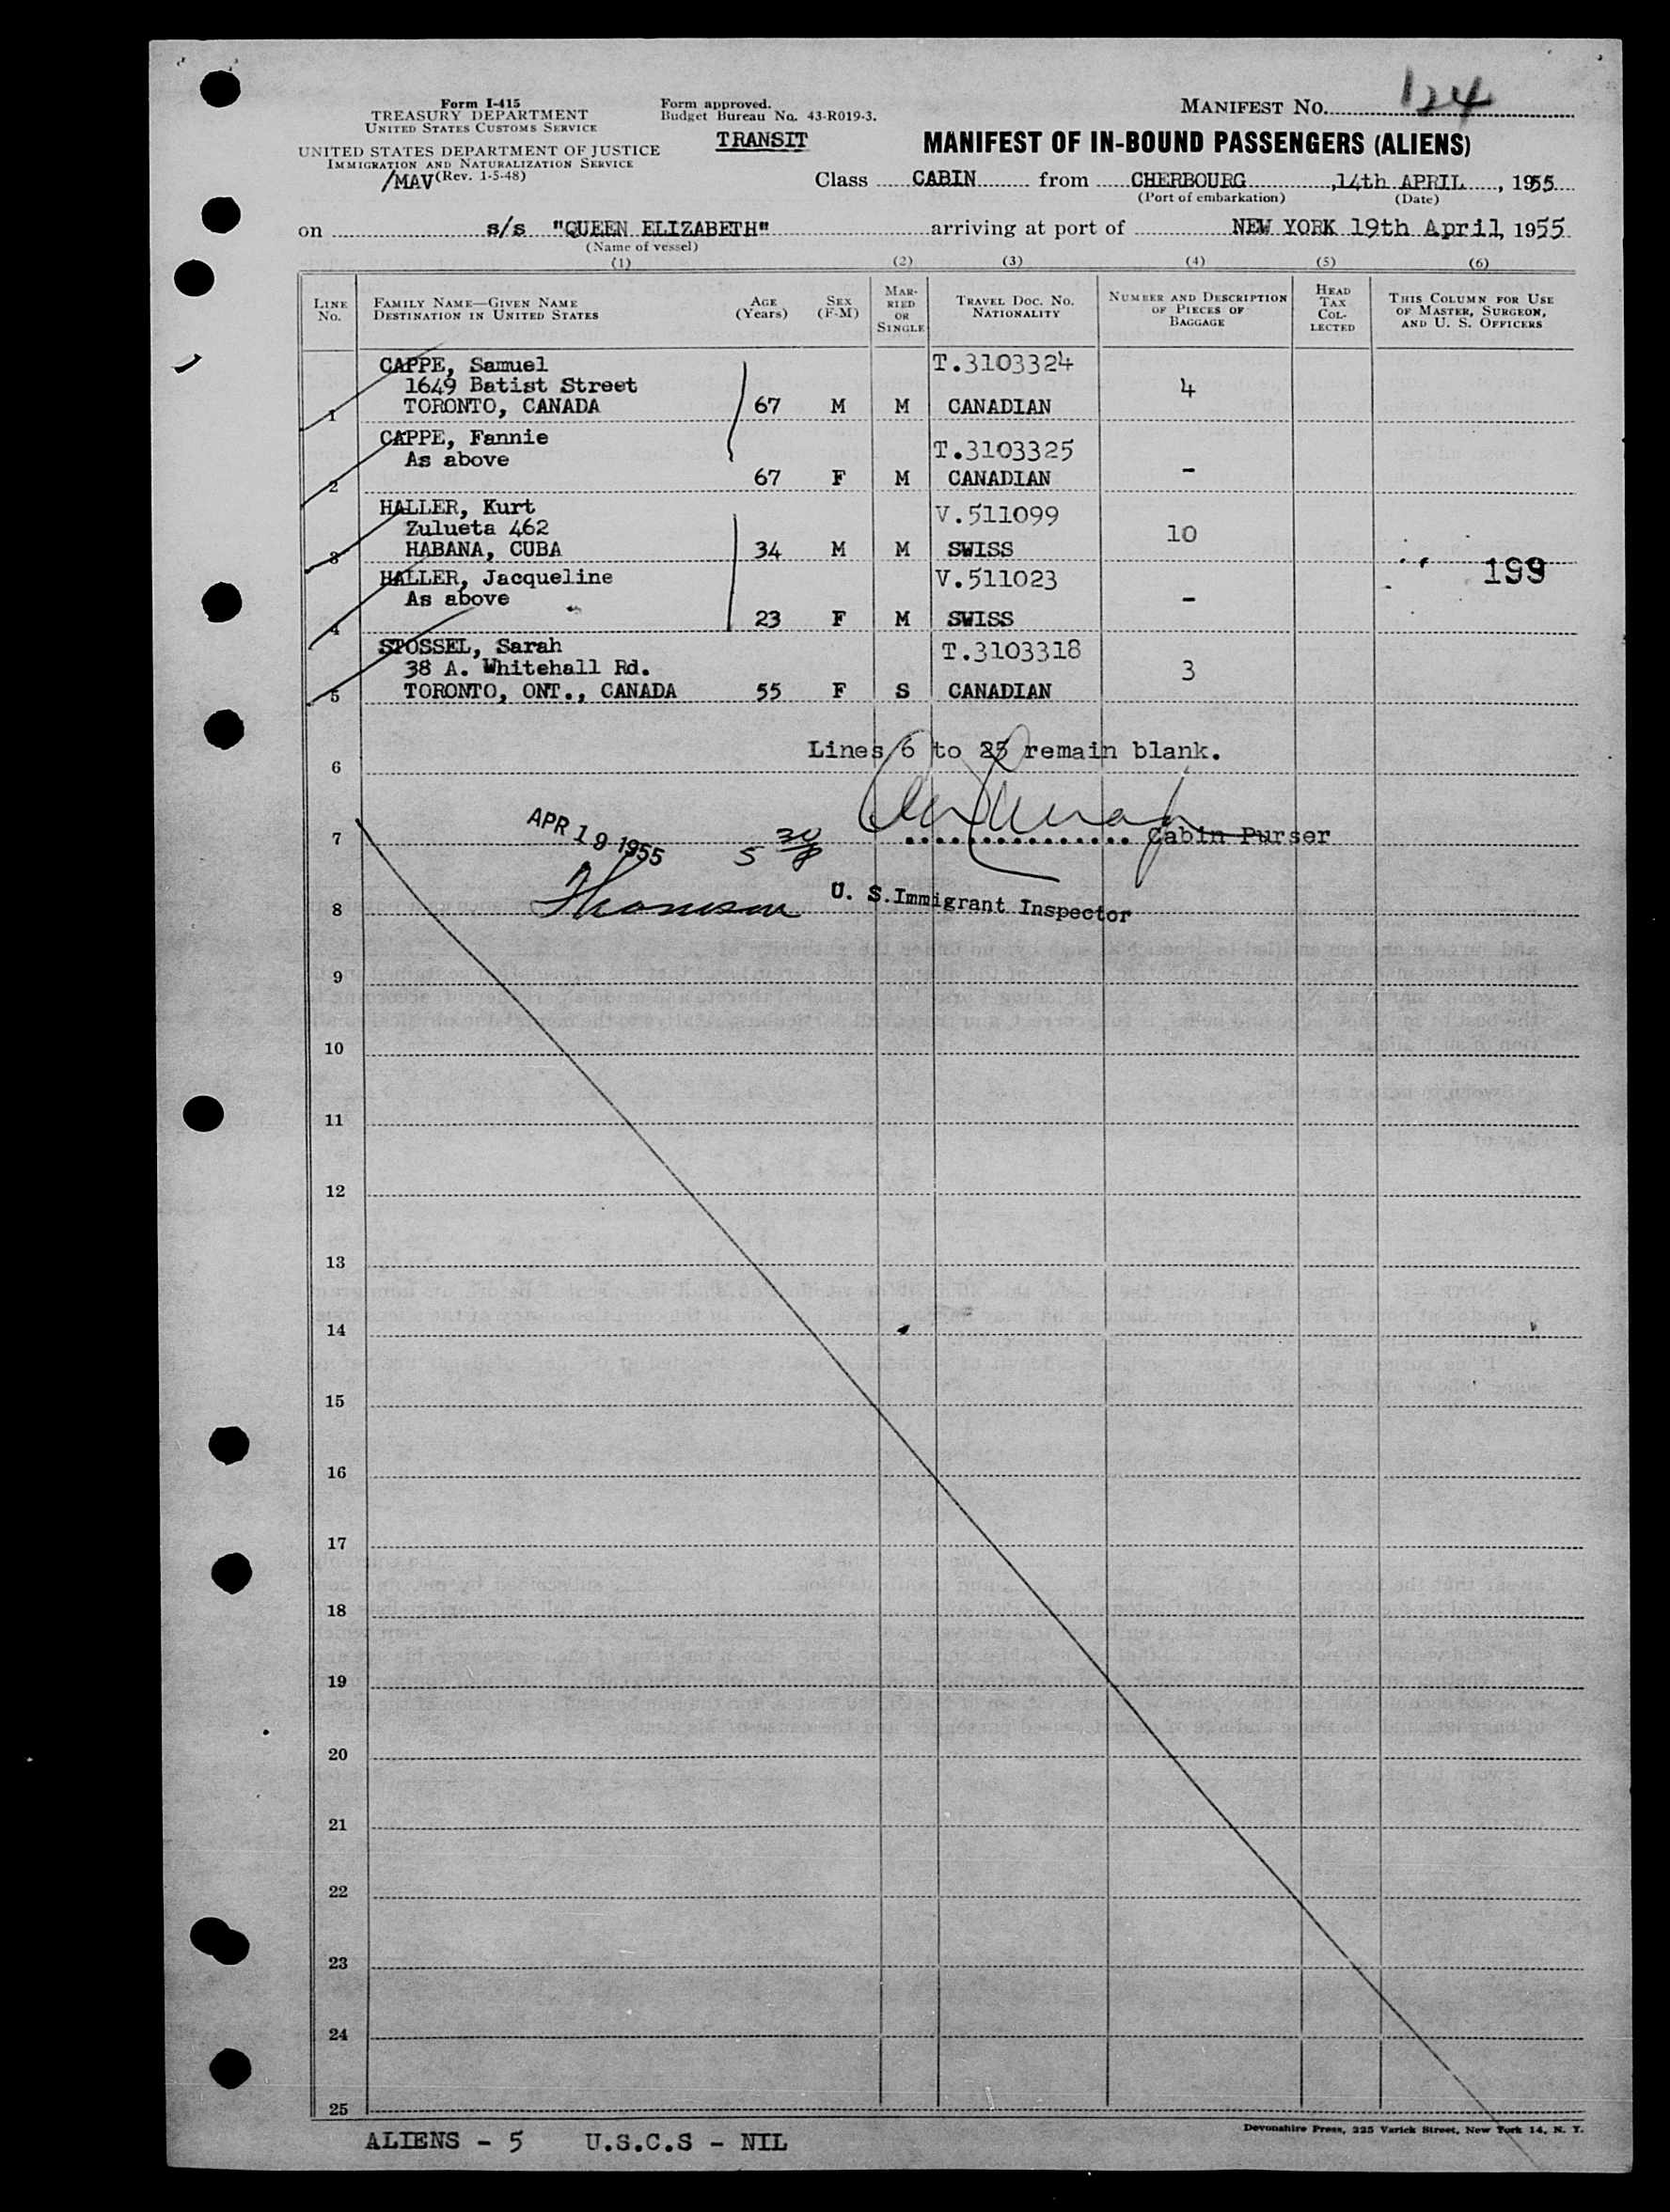 Form I-415
TREASURY DEPARTMENT
UNITED STATES CUSTOMS SERVICE
UNITED STATES DEPARTMENT OF JUSTICE
IMMIGRATION AND NATURALIZATION SERVICE
/MAV (Rev. 1-5-48)
Form approved.
Budget Bureau No. 43-R019-3.
TRANSIT
MANIFEST NO. 124
MANIFEST OF IN-BOUND PASSENGERS (ALIENS)
Class CABIN from CHERBOURG, 14th APRIL, 1955
(Port of embarkation) (Date)
on s/s "QUEEN ELIZABETH" arriving at port of NEW YORK 19th April, 1955
(Name of vessel)
(1) (2) (3) (4) (5) (6)
LINE NO.
FAMILY NAME—GIVEN NAME
DESTINATION IN UNITED STATES
AGE (Years)
SEX (F-M)
MARRIED OR SINGLE
TRAVEL DOC. NO. NATIONALITY
NUMBER AND DESCRIPTION OF PIECES OF BAGGAGE
HEAD TAX COLLECTED
THIS COLUMN FOR USE OF MASTER, SURGEON, AND U. S. OFFICERS
CAPPE, Samuel T.3103324
1649 Batist Street 4
1 TORONTO, CANADA 67 M M CANADIAN
CAPPE, Fannie T.3103325
As above -
2 67 F M CANADIAN
HALLER, Kurt V.511099
Zulueta 462 10
3 HABANA, CUBA 34 M M SWISS
199
HALLER, Jacqueline V.511023
As above -
4 23 F M SWISS
STOSSEL, Sarah T.3103318
38 A. Whitehall Rd. 3
5 TORONTO, ONT., CANADA 55 F S CANADIAN
Lines 6 to 25 remain blank.
6
7 APR 19 1955 5 30 Cabin Purser
8 Thomson U. S. Immigrant Inspector
9
10
11
12
13
14
15
16
17
18
19
20
21
22
23
24
25
Devonshire Press, 225 Varick Street, New York 14, N. Y.
ALIENS - 5 U.S.C.S - NIL